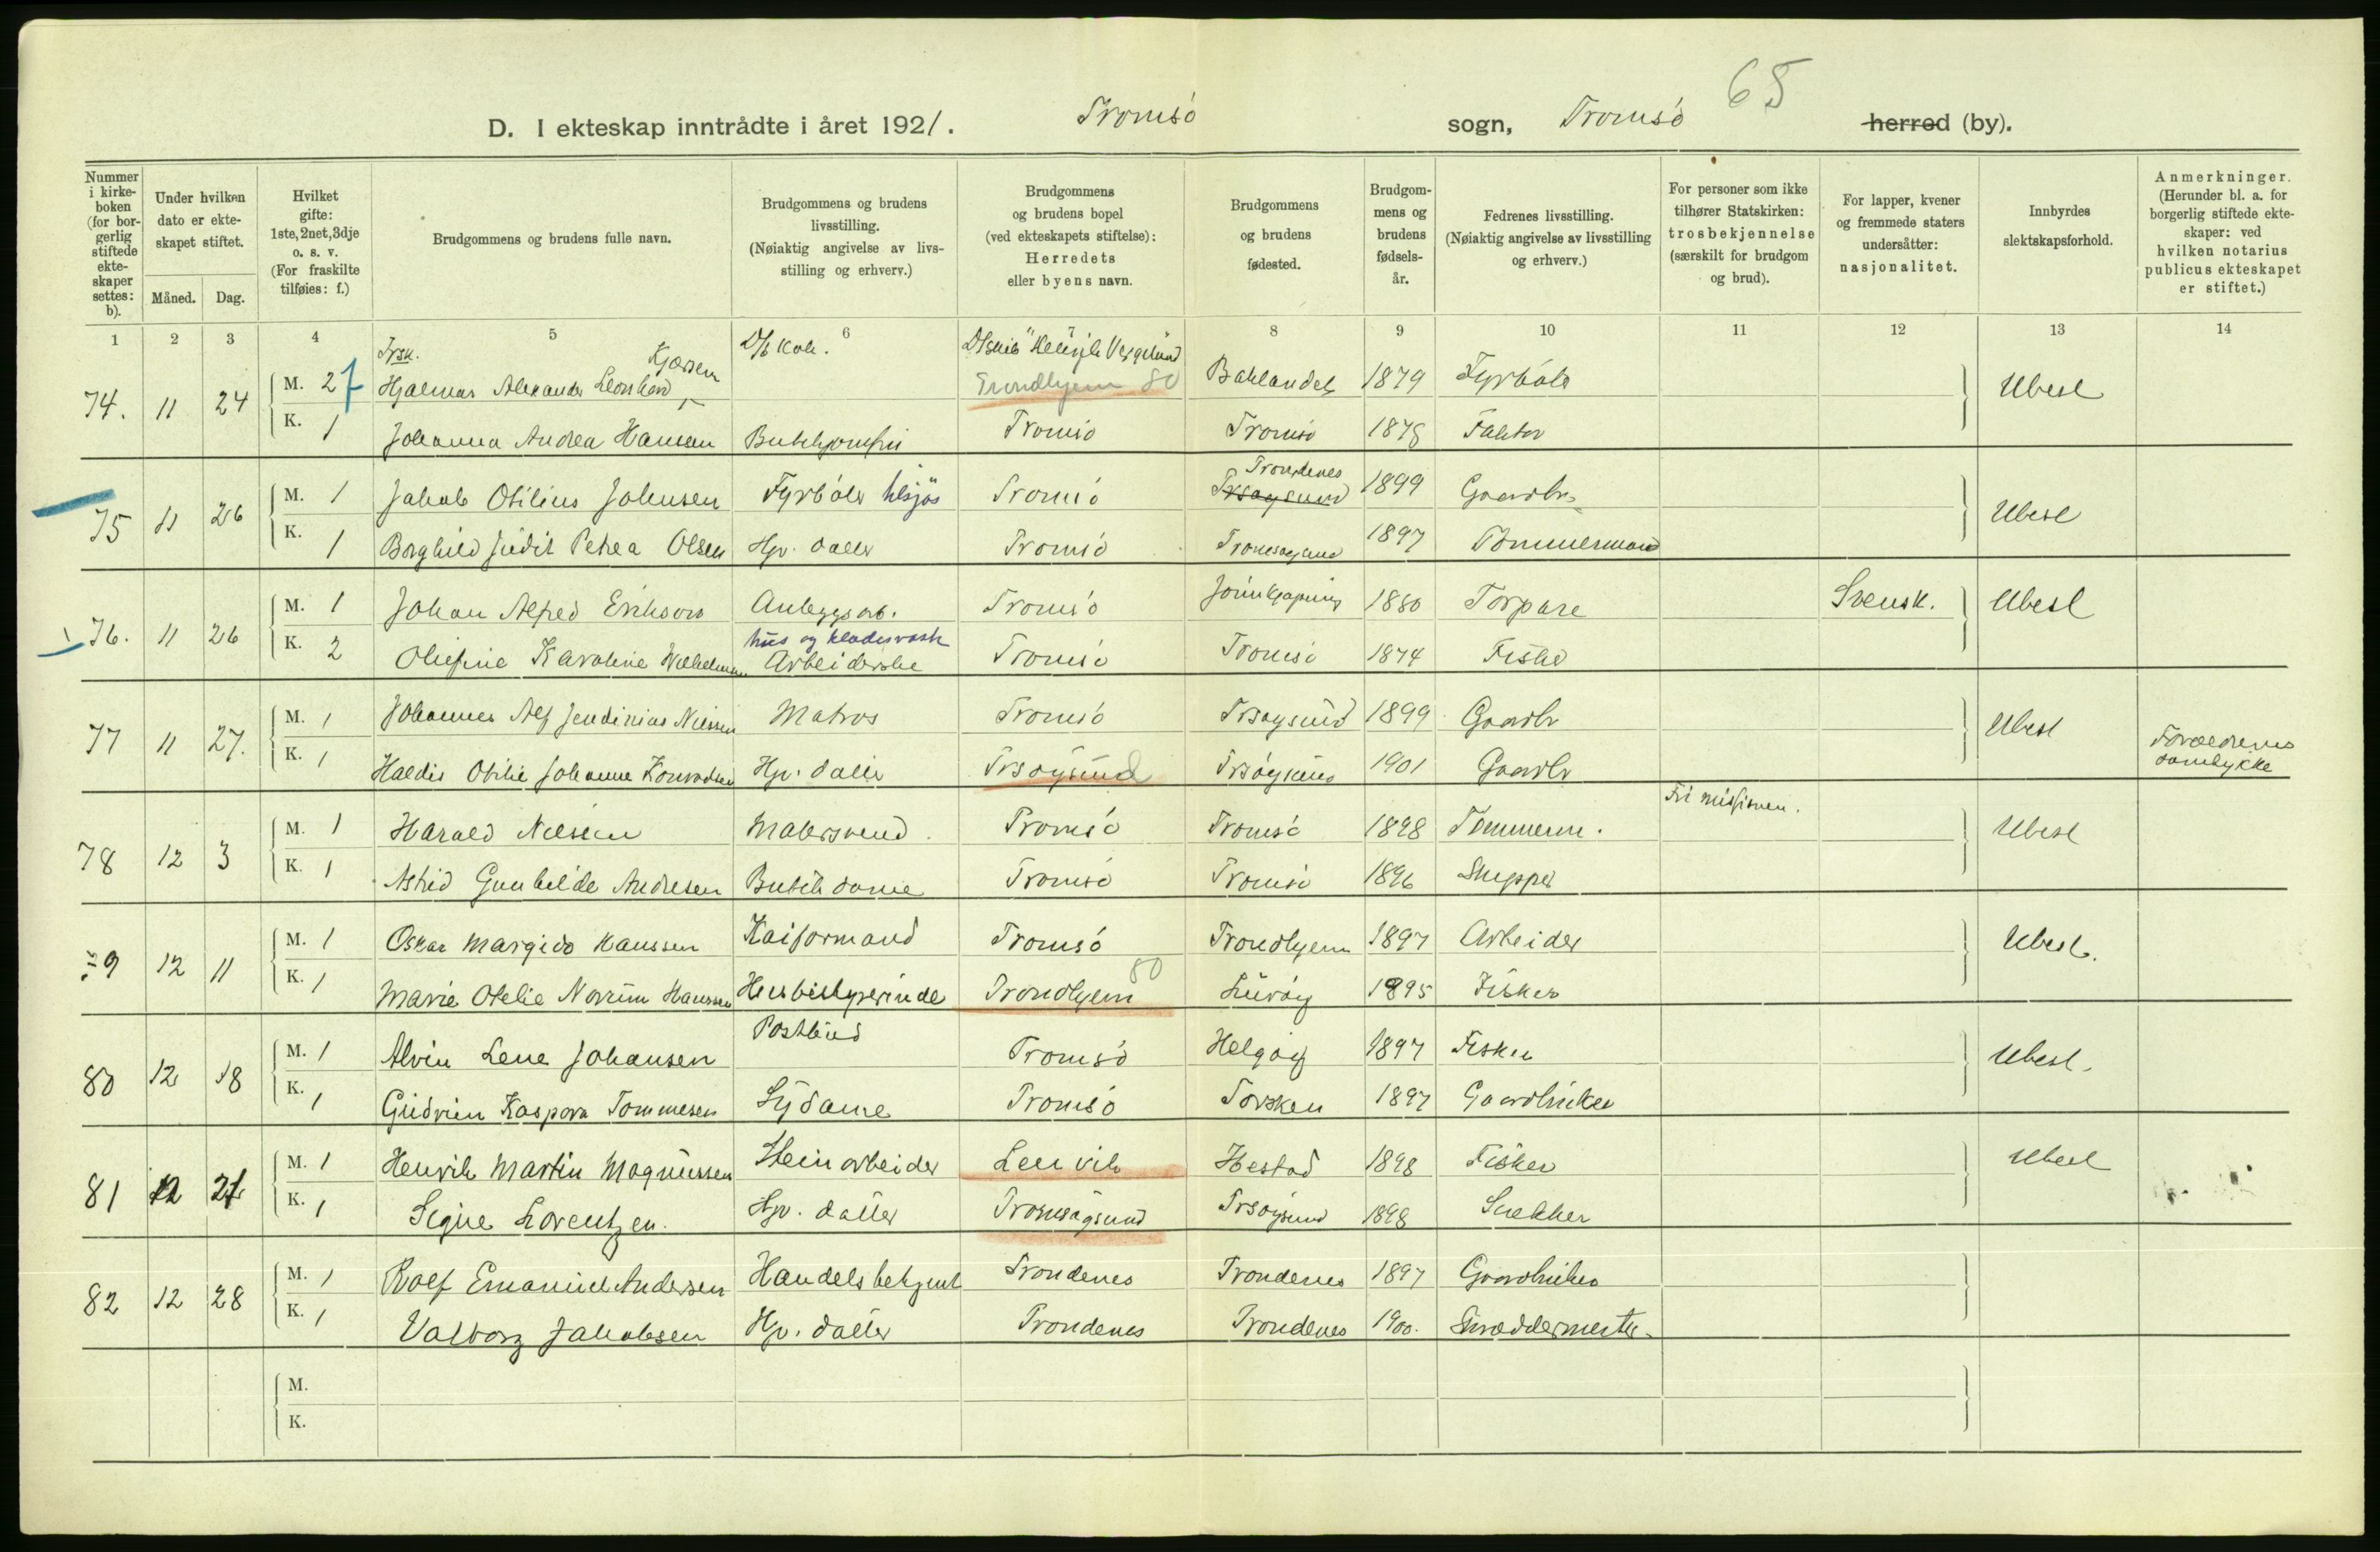 65
D. I ekteskap inntrådte i året 1921. Tromsø sogn, Tromsø herred (by).
Nummer i kirkeboken (for borgerlig stiftede ekteskaper settes: b).
Under hvilken dato er ekteskapet stiftet.
Måned. Dag.
Hvilket gifte: 1ste, 2net, 3dje o. s. v. (For fraskilte tilføies: f.)
Brudgommens og brudens fulle navn.
Brudgommens og brudens livsstilling. (Nøiaktig angivelse av livsstilling og erhverv.)
Brudgommens og brudens bopel (ved ekteskapets stiftelse): Herredets eller byens navn.
Brudgommens og brudens fødested.
Brudgommens og brudens fødselsår.
Fedrenes livsstilling. (Nøiaktig angivelse av livsstilling og erhverv.)
For personer som ikke tilhører Statskirken: trosbekjennelse (særskilt for brudgom og brud).
For lapper, kvener og fremmede staters undersåtter: nasjonalitet.
Innbyrdes slektskapsforhold.
Anmerkninger. (Herunder bl. a. for borgerlig stiftede ekteskaper: ved hvilken notarius publicus ekteskapet er stiftet.)
1 2 3 4 5 6 7 8 9 10 11 12 13 14
74. 11 24 M. 2 f Hjalmar Alexander Leonhard Kjøsen D/S Kok. Trondhjem 80 Baklandet 1879 Fyrbøter Ubesl
K. 1 Johanna Andrea Hansen Butikjomfru Tromsø Tromsø 1878 Faktor
75 11 26 M. 1 Jakob Otilius Johnsen Fyrbøter Tromsø Trondenes Trsøysund 1899 Gaardbr. Ubesl
K. 1 Borghild Judit Petrea Olsen Hjv. datter Tromsø Tromsøysund 1897 Tømmermand
76. 11 26 M. 1 Johan Alfred Erikson Anleggsarb. Tromsø Jönkjøping 1880 Torpare Svensk. Ubesl
K. 2 Olufine Karoline Wilhelmsen hus og klædesvask Arbeiderske Tromsø Tromsø 1874 Fisker
77 11 27. M. 1 Johannes Alf Jendinius Nilssen Matros Tromsø Trsøysund 1899 Gaardbr Ubesl
K. 1 Haldis Otilie Johanne Konradsen Hjv. datter Trsøysund Trsøysund 1901 Gaardbr Forældrenes samtykke
78 12 3 M. 1 Harald Nilsen Malersvend Tromsø Tromsø 1898 Tømmerm. Fri missionen. Ubesl
K. 1 Astrid Gunhilde Andresen Butikdame Tromsø Tromsø 1896 Skipper
79 12 11 M. 1 Oskar Margido Hanssen Kaiformand Tromsø Trondhjem 1897 Arbeider Ubesl.
K. 1 Marie Otelie Norum Hanssen Husbestyrerinde Trondhjem 80 Lurøy 1895 Fisker
80 12 18 M. 1 Alvin Lene Johansen Postbud Tromsø Helgøy 1897 Fisker Ubesl.
K. 1 Gudrun Kaspara Tommesen Sydame Tromsø Torsken 1897 Gaardbruker
81 12 21 M. 1 Henrik Martin Magnussen Steinarbeider Lenvik Hestad 1898 Fisker Ubesl
K. 1 Signe Lorentzen. Hjv. datter Tromsøysund Trsøysund 1898 Snekker
82 12 28 M. 1 Rolf Emanuel Andersen Handelsbetjent Trondenes Trondenes 1897 Gaardbruker
K. 1 Valborg Jakobsen Hjv. datter Trondenes Trondenes 1900. Skræddermester.
M.
K.